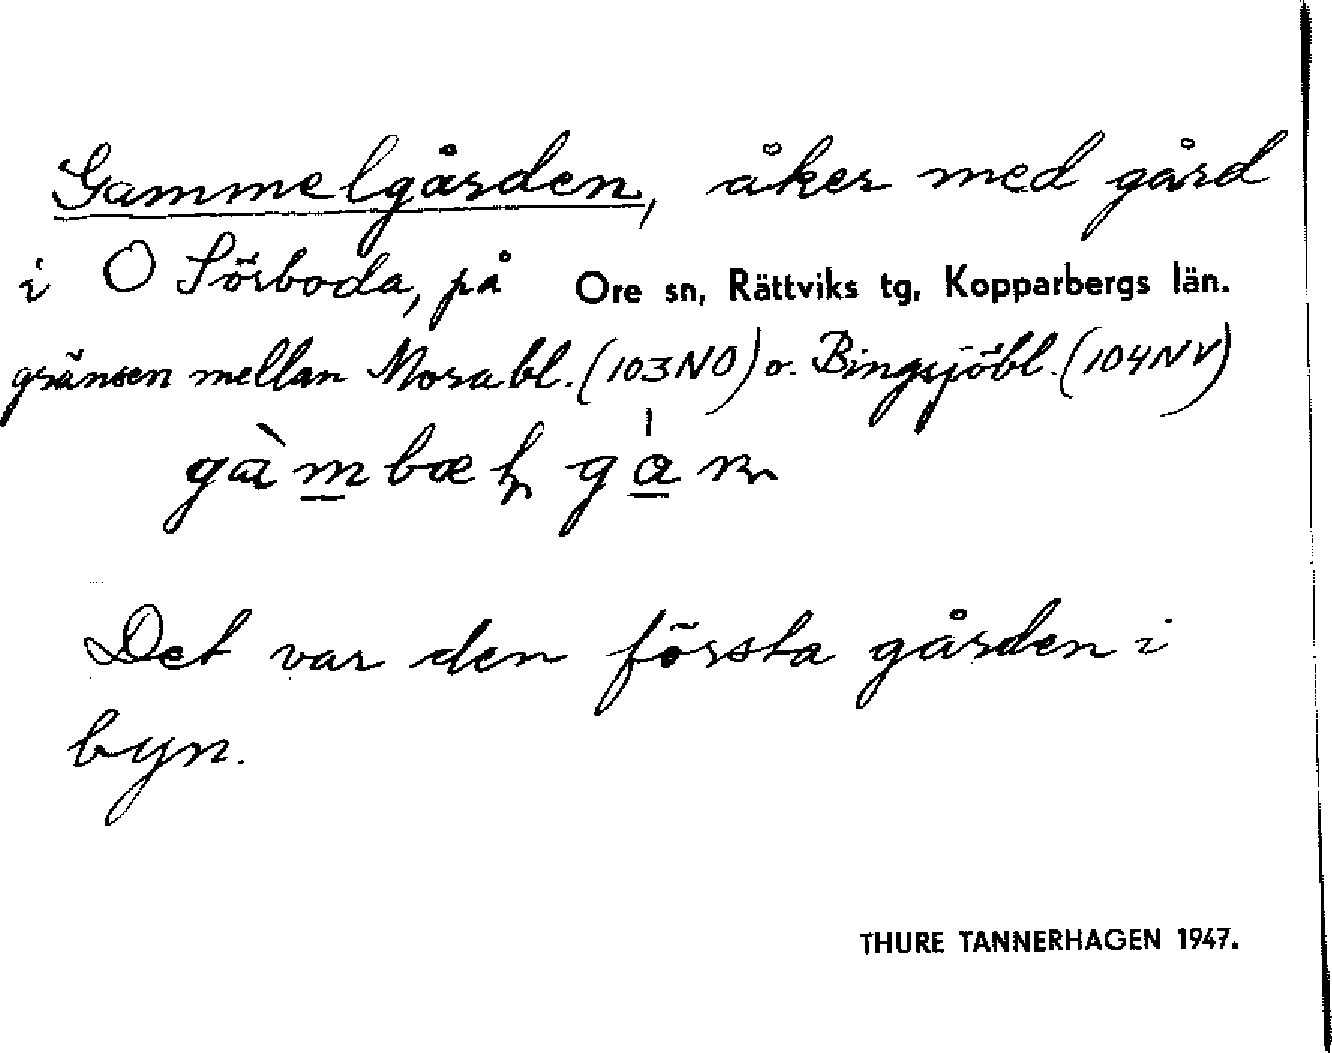 Gammelgården, åker med gård
i O Sörboda, på Ore sn, Rättviks tg, Kopparbergs län.
gränsen mellan Mora bl. (103NO) o. Bingsjöbl. (104NV)
Det var den första gården i
byn.
THURE TANNERHAGEN 1947.